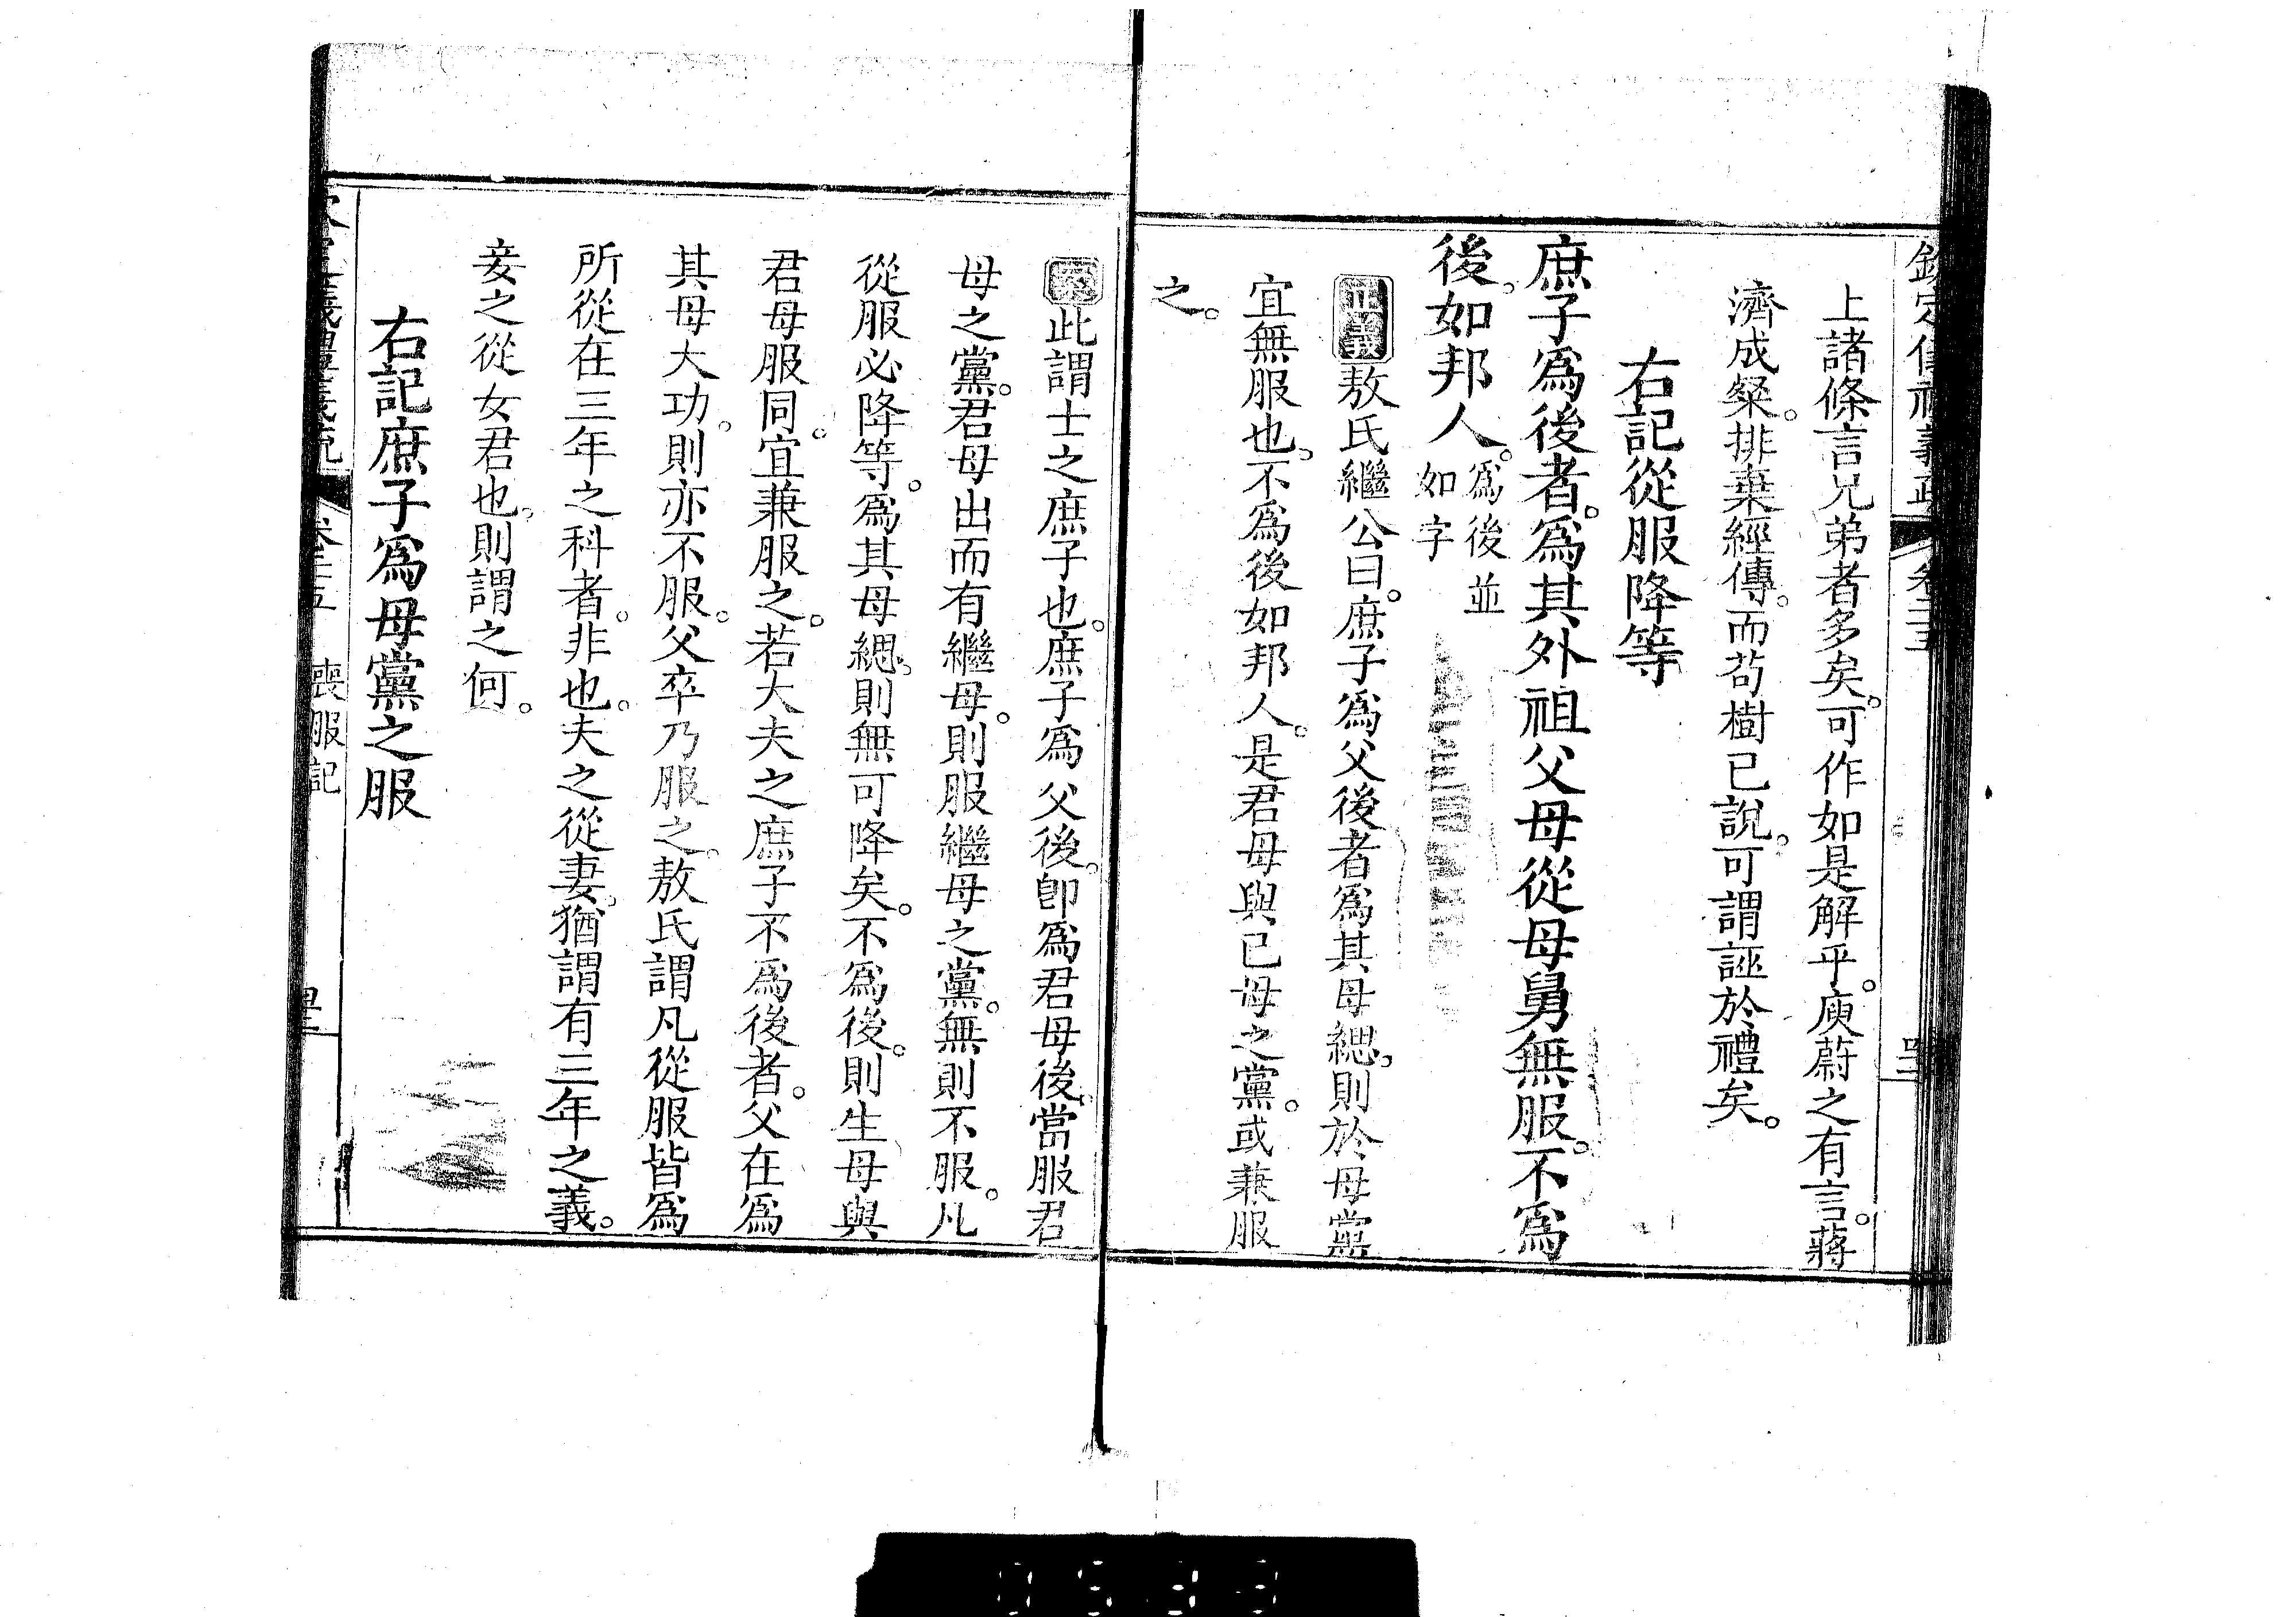 上諸條言兄弟者多矣。可作如是解乎。庾蔚之有言。蔣
濟成粲。排棄經傳。而苟樹已說。可謂誣於禮矣。
右記從服降等
庶子爲後者。爲其外祖父母從母舅無服。不爲
後。如邦人。爲後並
如字
正義敖氏繼公曰。庶子爲父後者爲其母緦。則於母黨
宜無服也。不爲後如邦人。是君母與已母之黨。或兼服
之。
案此謂士之庶子也。庶子爲父後。卽爲君母後。當服君
母之黨。君母出而有繼母。則服繼母之黨。無則不服。凡
從服必降等。爲其母緦。則無可降矣。不爲後。則生母與
君母服同。宜兼服之。若大夫之庶子不爲後者。父在爲
其母大功。則亦不服。父卒乃服之。敖氏謂凡從服皆爲
所從在三年之科者。非也。夫之從妻。猶謂有三年之義。
妾之從女君也。則謂之何。
右記庶子爲母黨之服
喪服記